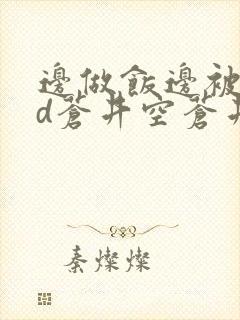 邊做飯邊被
d蒼井空蒼井
秦燦燦